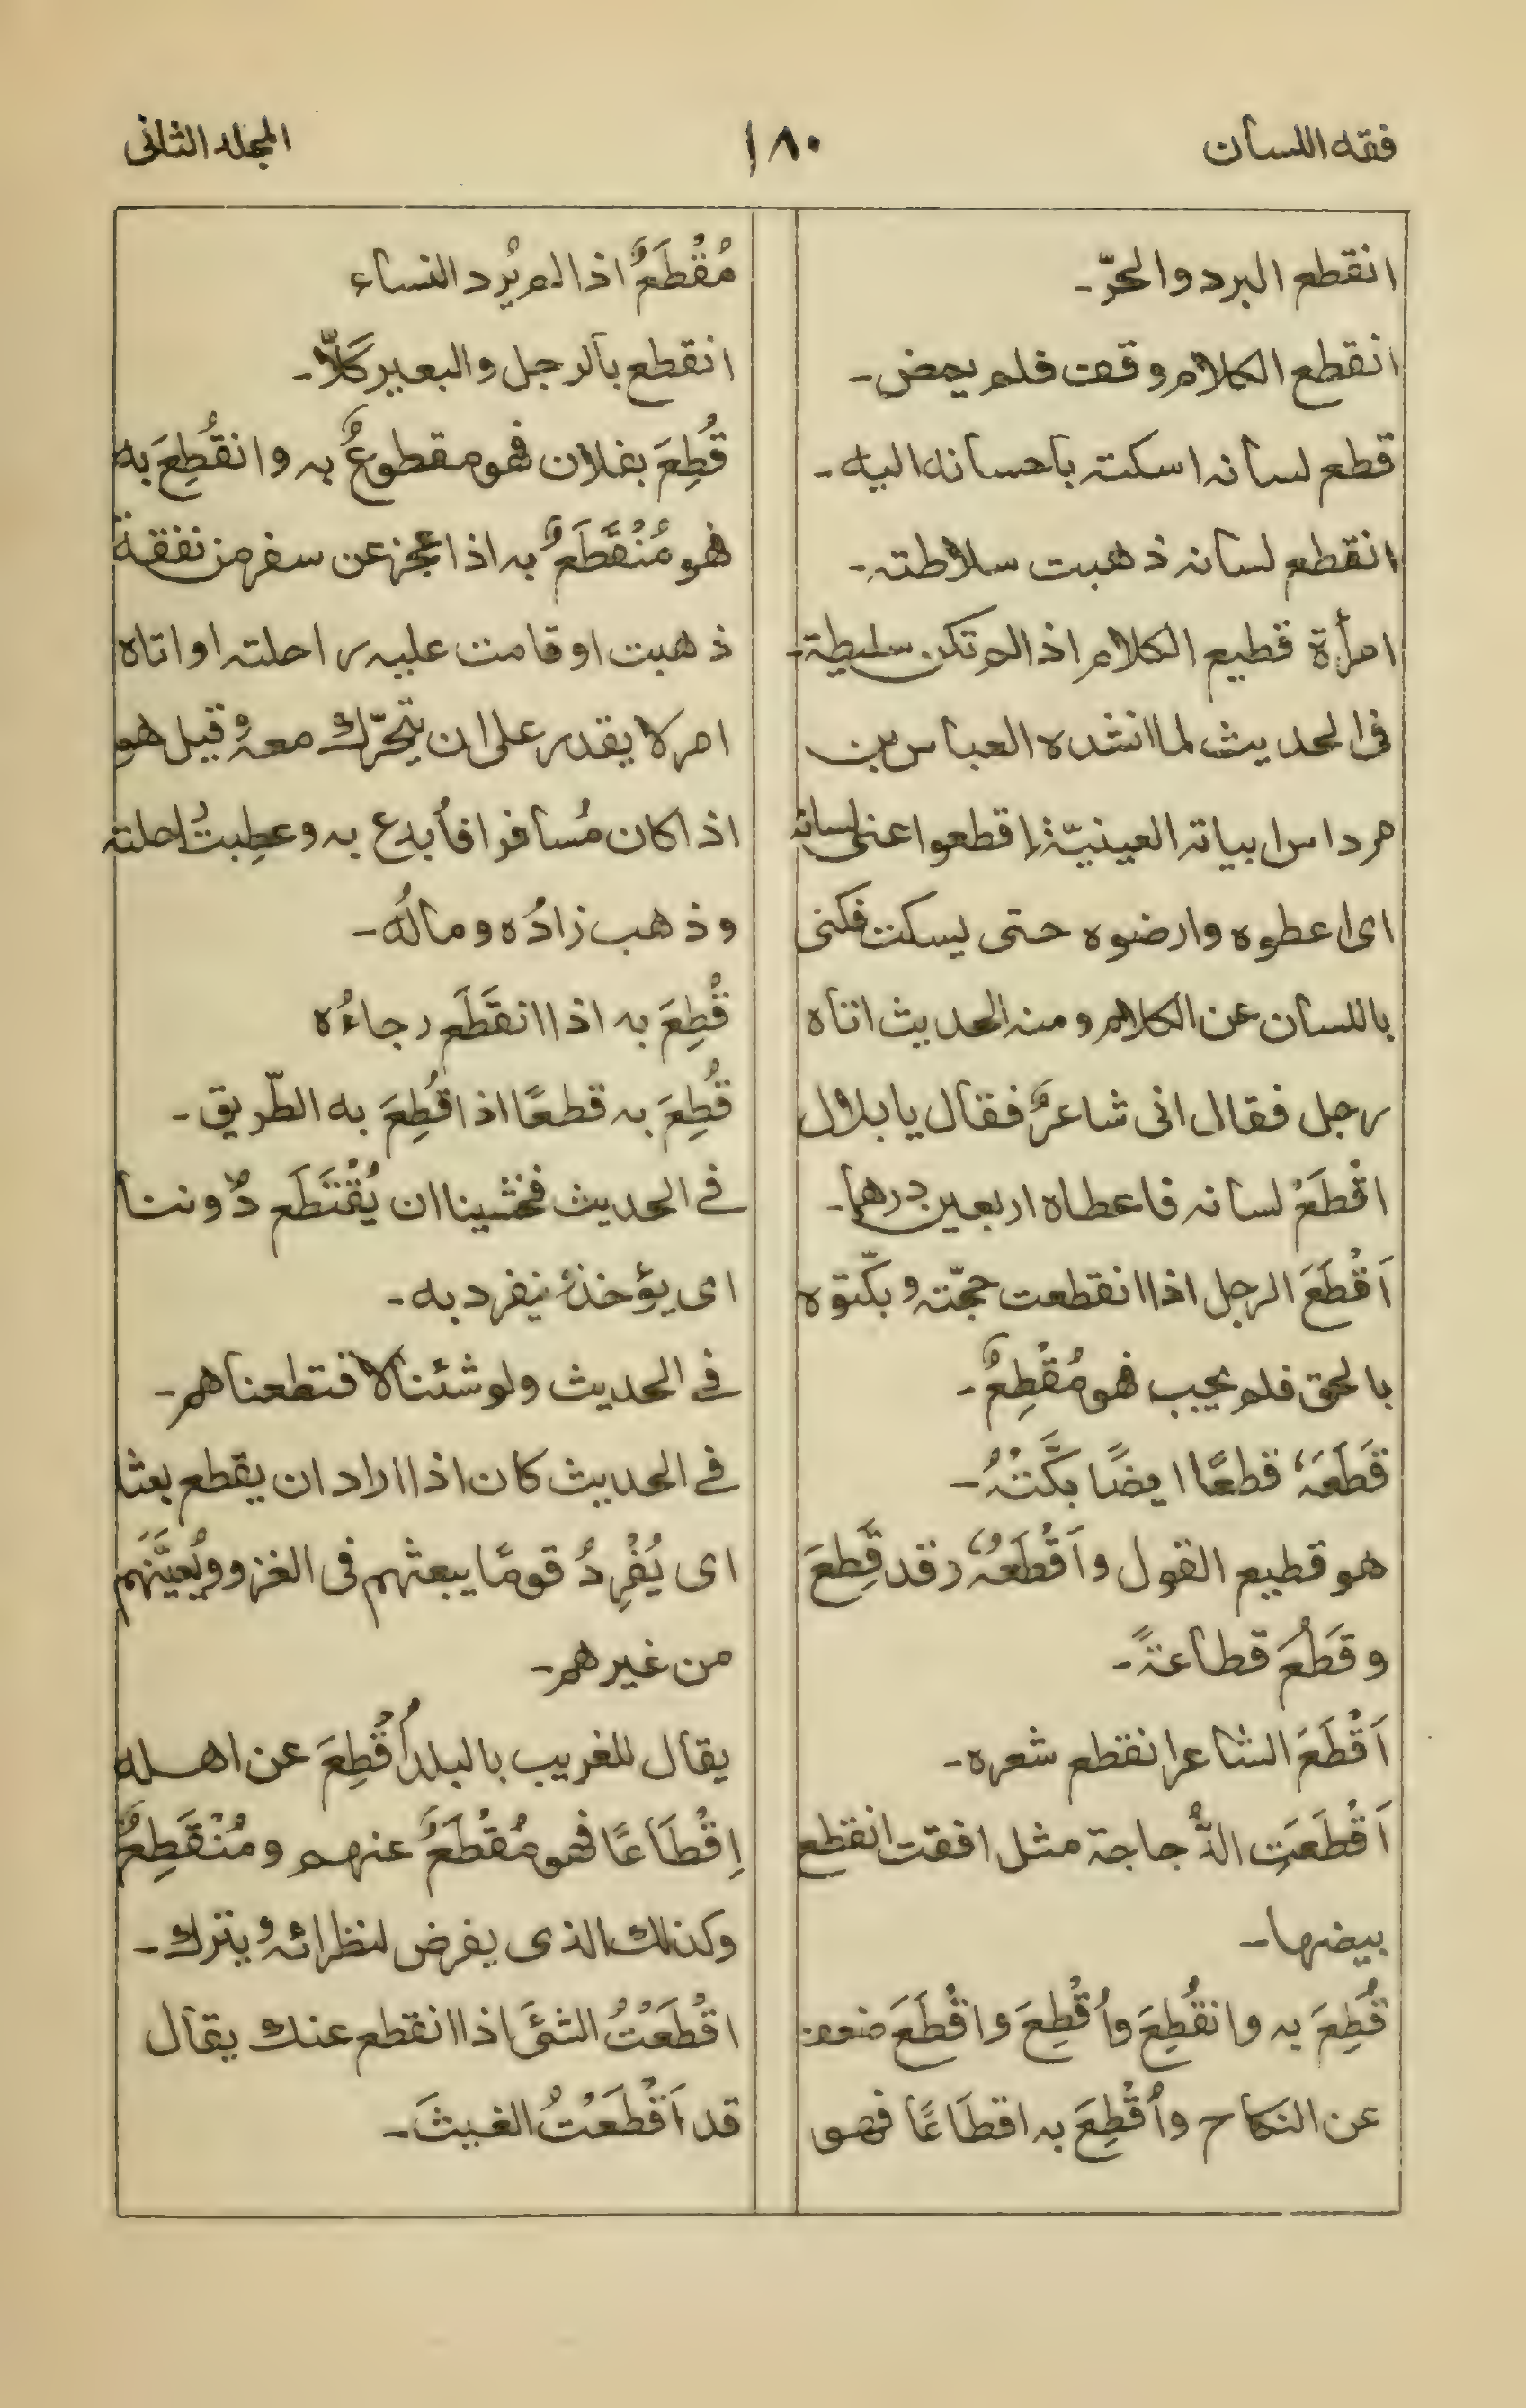 فقه اللسان
١٨٠
المجلد الثانى
انقطع البرد والحرّ-
انقطع الكلام وقف فلم يمض-
قطع لسانه اسكته باحسانه اليه-
انقطع لسانه ذهبت سلاطته-
امرأة قطيع الكلام اذا لم تكن سليطة-
فى الحديث لما انشده العباس بن
مرداس ابياته العينيّة اقطعوا عنى لسانه
اى اعطوه وارضوه حتى يسكت فكنى
باللسان عن الكلام ومنه الحديث اتاه
رجل فقال انى شاعرٌ فقال يا بلال
اقْطَعْ لسانه فاعطاه اربعين درهما-
اَقْطَعَ الرجل اذا انقطعت حجّته وبكّتوه
بالحق فلم يجب فهو مُقْطِعٌ-
قَطَعَهٗ قطعًا ايضًا بَكَّتْتُهُ-
هو قطيع القول واَقْطَعُهٗ وقد قَطِعَ
وقَطُعَ قطاعةً-
اَقْطَعَ الشاعر انقطع شعره-
اَقْطَعَتِ الدُّجاجة مثل اقفت انقطع
بيضها-
قُطِعَ به وانقُطِعَ واُقْطِعَ واقْطَعَ ضعف
عن النكاح واُقْطِعَ به اقطَاعًا فهو
مُقْطَعٌ اذا لم يُرِد النساء
انقطع بالرجل والبعير كَلَّا-
قُطِعَ بفلان فهو مقطوعٌ به وانقُطِعَ به
فهو مُنْقَطَعٌ به اذا عجز عن سفر من نفقة
ذهبت او قامت عليه راحلته او اتاه
امر لا يقدر على ان يتحرّك معهٗ وقيل هو
اذا كان مُسافرا فأُبدع به وعطِبتْ راحلته
وذهب زادُه ومالُه-
قُطِعَ به اذا انقَطَعَ رجاءُه
قُطِعَ به قطعًا اذا قُطِعَ به الطّريق-
فے الحديث فخشينا ان يُقْتَطَع دُوننا
اى يؤخذ وينفرد به-
فے الحديث ولو شئنا لاقتطعناهم-
فے الحديث كان اذا اراد ان يقطع بعثا
اى يُفْرِدُ قومًا يبعثهم فى الغزو ويُعيَّنَهم
من غيرهم-
يقال للغريب بالبلد اُقْطِعَ عن اهله
اِقْطَاعًا فهو مُقْطَعٌ عنهم ومُنْقَطِعٌ
وكذلك الذى يفرض لنظرائه ويترك-
اقْطَعْتُ الشئَ اذا انقطع عنك يقال
قد اَقْطَعْتُ الغيثَ-